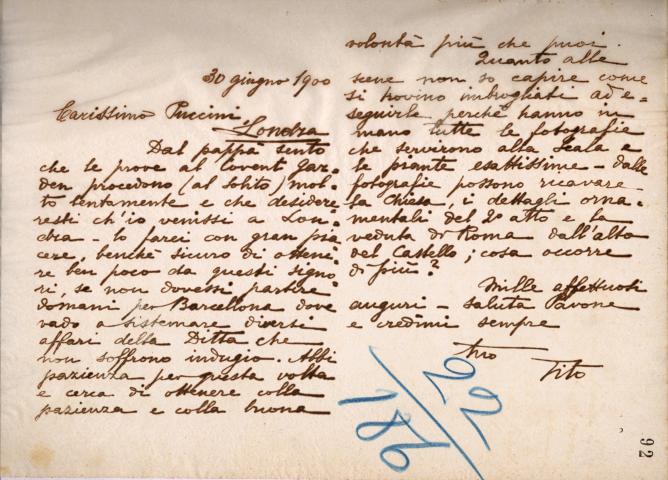 30 giugno 1900
Carissimo Puccini
Londra
Dal pappà sento
che le prove al Covent Gar-
den procedono (al solito) mol-
to lentamente e che desidere-
resti ch'io venissi a Lon-
dra - lo farei con gran pia-
cere, benchè sicuro di ottene-
re ben poco da questi signo-
ri, se non dovessi partire
domani per Barcellona dove
vado a sistemare diversi
affari della Ditta che
non soffrono indugio. Abbi
pazienza per questa volta
e cerca di ottenere colla
pazienza e colla buona
volontà più che puoi.
Quanto alle
scene non so capire come
si trovino imbrogliati ad e-
seguirle perchè hanno in
mano tutte le fotografie
che servirono alla Scala e
le piante esattissime - dalle
fotografie possono ricavare
la Chiesa, i dettagli orna-
mentali del 2º atto e la
veduta di Roma dall'alto
del Castello; cosa occorre
di più?
Mille affettuosi
auguri - saluta Pavone
e credimi sempre
tuo
Tito
22/186
92